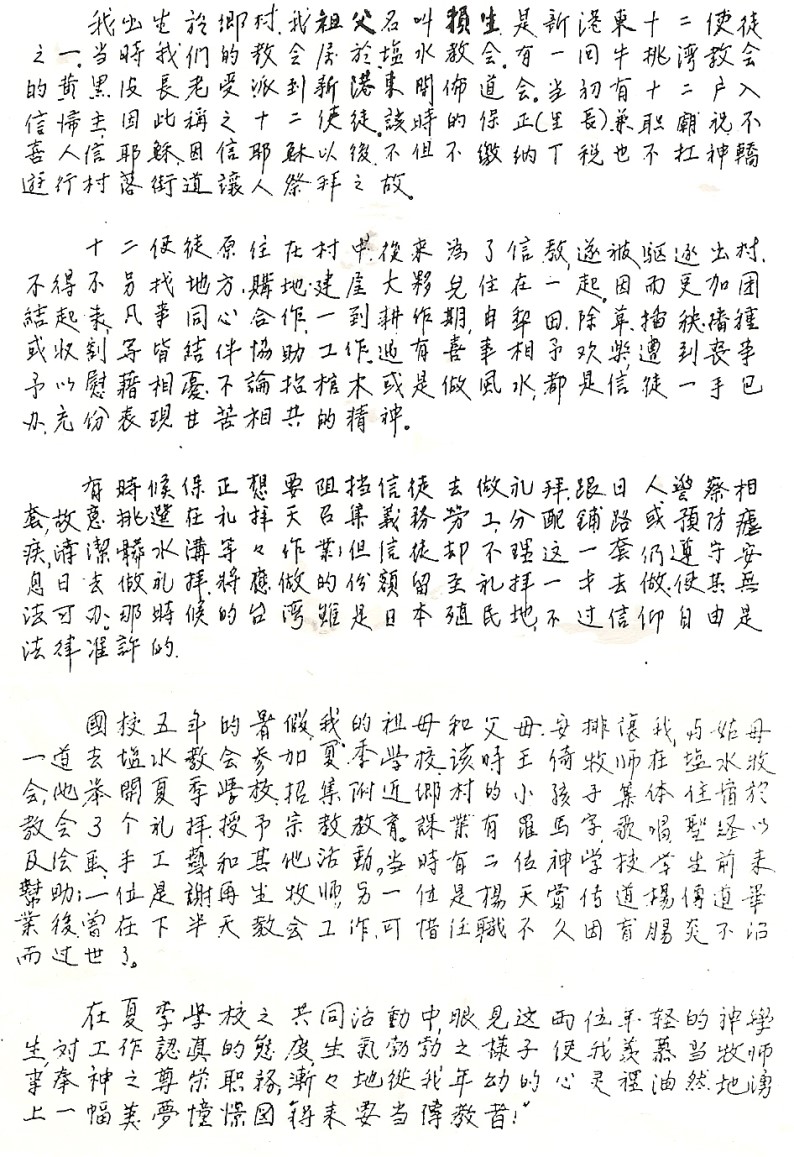 我出生於鄉村.我祖父名叫賴生.是新港東十二使徒
之一.当時我們的教会屬於塩水教会.有一囘牛挑湾教会
的黄黑皮長老受派到新港東開佈道会.当初有十二户入
信帰主,因此稱之十二使徒.該時的保正(里長)兼职廟祝.不
喜人信耶穌.因信耶穌以後.不但不缴纳丁税也不扛神轎
遊行村落街道讓人祭拜之故.
十二使徒原住在村中.後來為了信教,遂被驅逐出村.
不得不另找地方.購地.建屋大夥兒住在一起.因而更加团
結起來.凡事同心合作.一到耕作期,自犁田.除草.插秧.播種
或收割等皆結伴協助工作.遇有喜事相予欢樂,遭到丧事
予以慰藉相憂.不論抬棺木或是做風水,都是信徒一手包
办.充份表現甘苦相共的精神。
有時候保正想要阻挡信徒去做礼拜.跟日人警察相
套,故意挑選在礼拜天召集義務劳工.分配鋪路或預防瘧
疾,清潔髒水溝等々作業;但信徒却不理这一套.仍遵守安
息日去做礼拜.將應做的份額留至礼拜一才去做.使其無
法可办.那時候的台湾雖是日本殖民地,不过信仰自由是
法律准許的.
國校五年的暑假.我的祖母和父母.安排讓我,与姑母
一道去塩水教会參加夏季学校.該時王倚牧師在塩水牧
会,他举開夏季學校.招集附近鄉村的小孩子集体住宿於
教会了个礼拜.授予宗教教育.課業有羅馬字,歌唱聖経以
及绘画.手工藝和其他活動.当時有二位神学校学生前来
幫助;一位是謝再生牧師,另一位是楊天賞传道.揚傳道畢
業後.曾在下半天教会工作.可惜任職不久因盲腸炎不治
而过世了.
在夏季學校之共同活動中,眼見这兩位年轻的神學
生,对工作認真的態度,生氣勃勃之樣子使我羨慕当牧師
事奉神之尊栄职務,漸々地從我年幼的心灵裡油然地湧
上一幅美夢憧憬囡得来要当傳教者!"